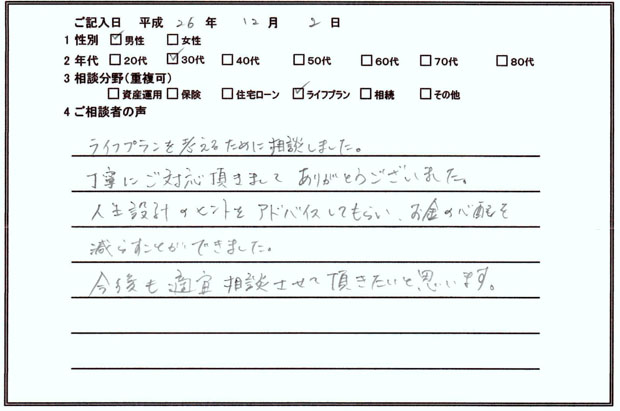 ご記入日 平成 26 年 12 月 2 日
1 性別 ☑男性 □女性
2 年代 □20代 ☑30代 □40代 □50代 □60代 □70代 □80代
3 相談分野(重複可)
□資産運用 □保険 □住宅ローン ☑ライフプラン □相続 □その他
4 ご相談者の声
ライフプランを考えるために相談しました。
丁寧にご対応頂きまして ありがとうございました。
人生設計のヒントをアドバイスしてもらい、お金の心配を
減らすことができました。
今後も適宜相談させて頂きたいと思います。